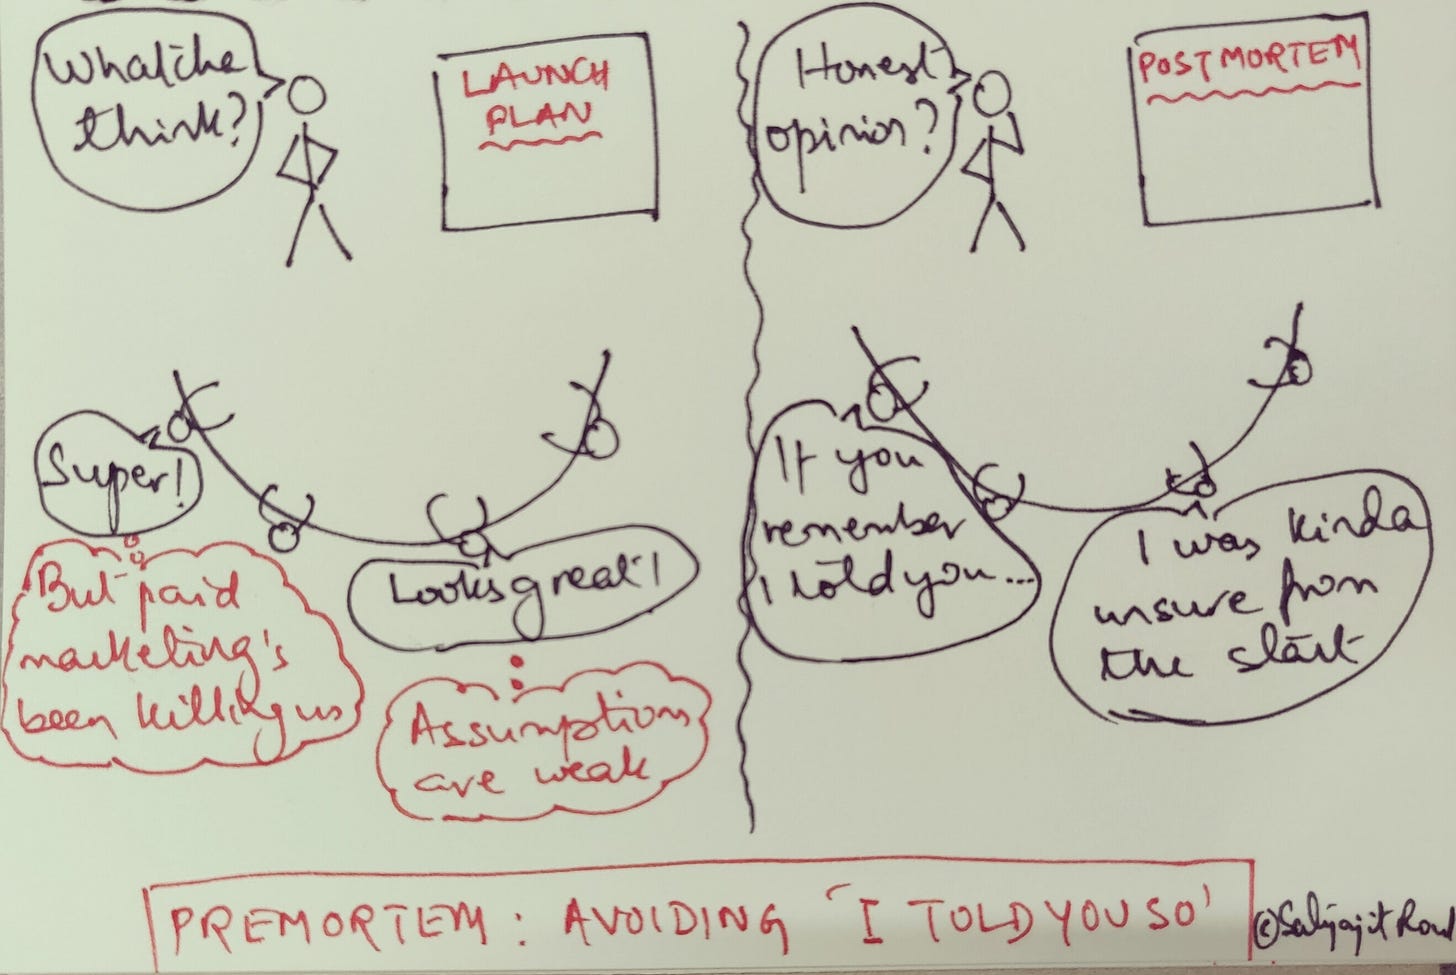 Whatche
think?
LAUNCH
PLAN
Super!
But paid
marketing's
been killing us
Looks great!
Assumptions
are weak
Honest
opinion?
POSTMORTEM
If you
remember
I told you...
I was kinda
unsure from
the start
PREMORTEM: AVOIDING 'I TOLD YOU SO'
© Satyajit Rout